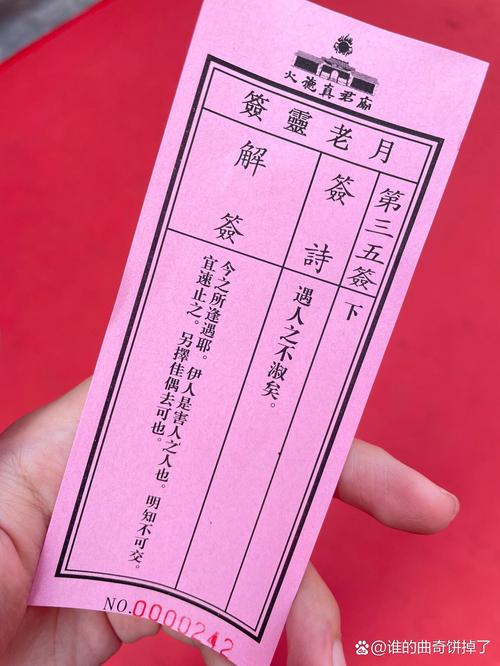 火德真君廟
月老靈簽
第三五簽 下
簽詩
遇人之不淑矣。
解簽
今之所逢遇耶。伊人是害人之人也。明知不可交。
宜速止之。另擇佳偶去可也。
NO.0000242
@谁的曲奇饼掉了